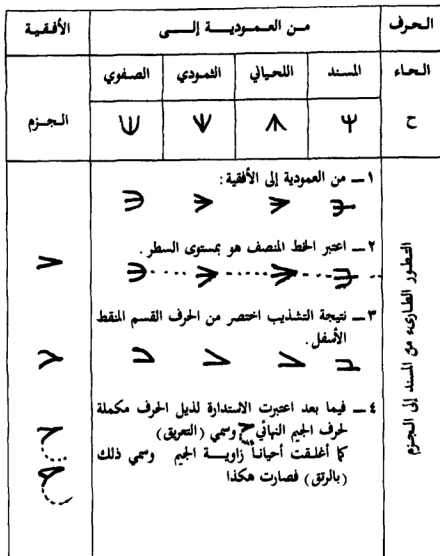 الحرف
من العمودية إلى
الأفقية
الحاء
المسند
اللحياني
الثمودي
الصفوي
ح
الجزم
التطور الطارىء من المسند إلى الجزم
١ــ من العمودية إلى الأفقية:
٢ــ اعتبر الخط المنصف هو بمستوى السطر.
٣ــ نتيجة التشذيب اختصر من الحرف القسم المنقط
الأسفل.
٤ــ فيما بعد اعتبرت الاستدارة لذيل الحرف مكملة
لحرف الجيم النهائي ح وسمي (التعريق)
كما أغلقت أحياناً زاوية الجيم وسمي ذلك
(بالرتق) فصارت هكذا